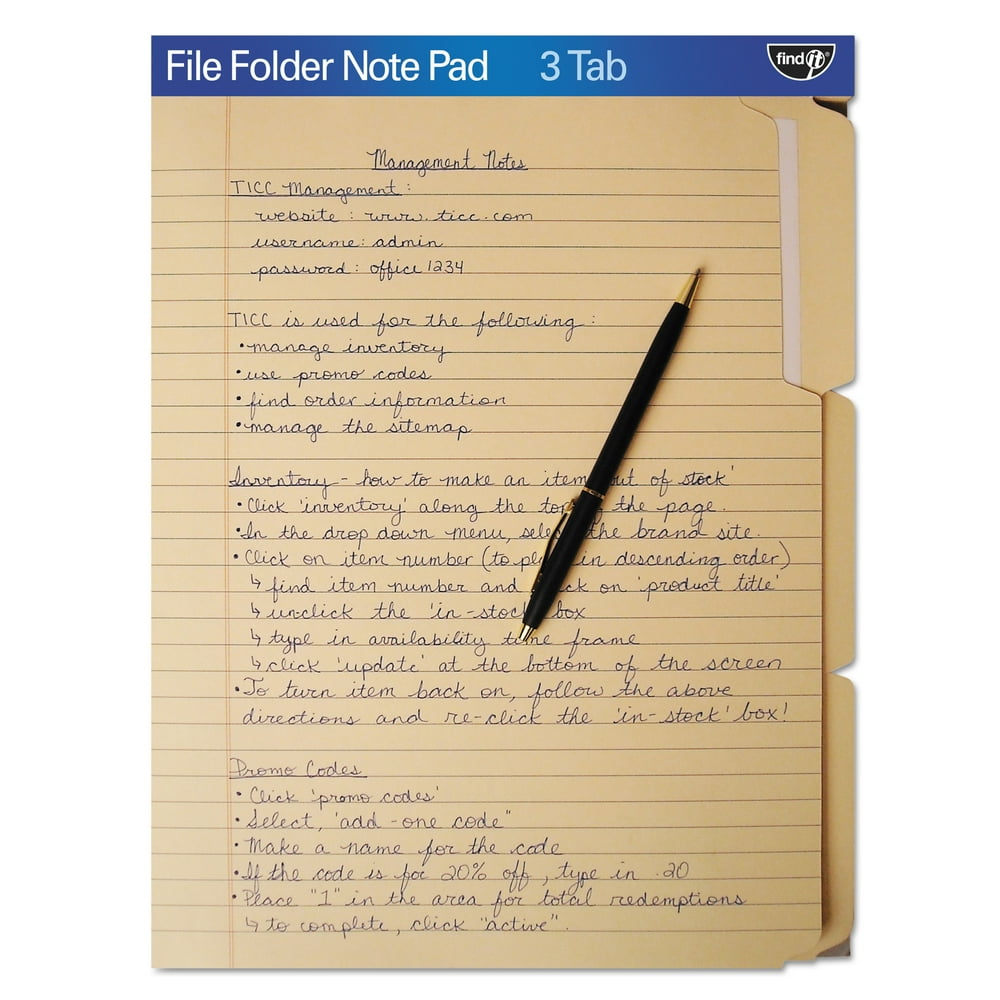 File Folder Note Pad 3 Tab
find it®
Management Notes
TICC Management:
website: www.ticc.com
username: admin
password: office1234
TICC is used for the following:
•manage inventory
•use promo codes
•find order information
•manage the sitemap
Inventory - how to make an item out of stock'
•Click 'inventory' along the top the page.
•In the drop down menu, select the brand site.
•Click on item number (to in descending order)
↳ find item number and click on 'product title'
↳ unclick the 'in-stock' box
↳ type in availability time frame
↳ click 'update' at the bottom of the screen
•To turn item back on, follow the above
directions and re-click the 'in-stock' box!
Promo Codes
• Click 'promo codes'
•Select, 'add-one code"
•Make a name for the code
•If the code is for 20% off, type in .20
•Place "1" in the area for total redemptions
↳ to complete, click "active".